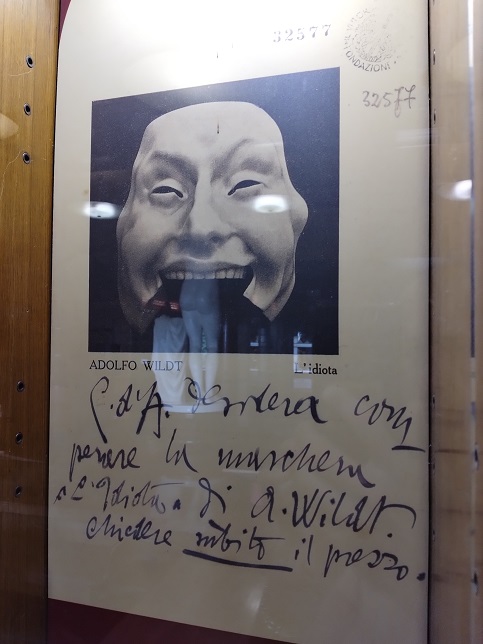 32577
FONDAZIONE
32577
ADOLFO WILDT
L'idiota
G. d'A. desidera com
perare la maschera
"L'Idiota" di A. Wildt.
chiedere subito il prezzo.